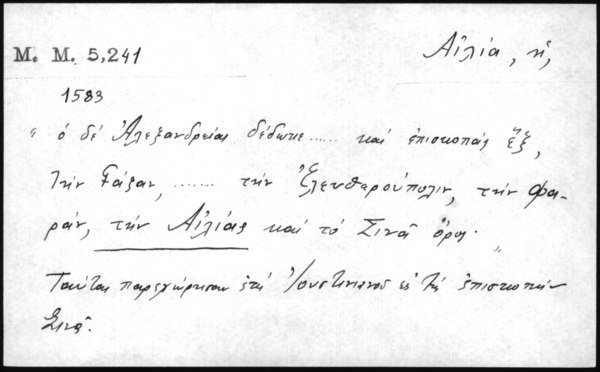 Μ. Μ. 5,241
Αἰλία, ἡ,
1583
" ὁ δὲ Ἀλεξανδρείας δέδωκε...... καὶ ἐπισκοπὰς ἕξ,
τὴν Γάζαν, ....... τὴν Ἐλευθερούπολιν, τὴν Φα-
ράν, τὴν Αἰλίας καὶ τὸ Σινᾶ ὄρος. "
Ταύτας παρεχώρησαν ἐπὶ Ἰουστινιανοῦ εἰς τὴν ἐπισκοπὴν
Σινᾶ.